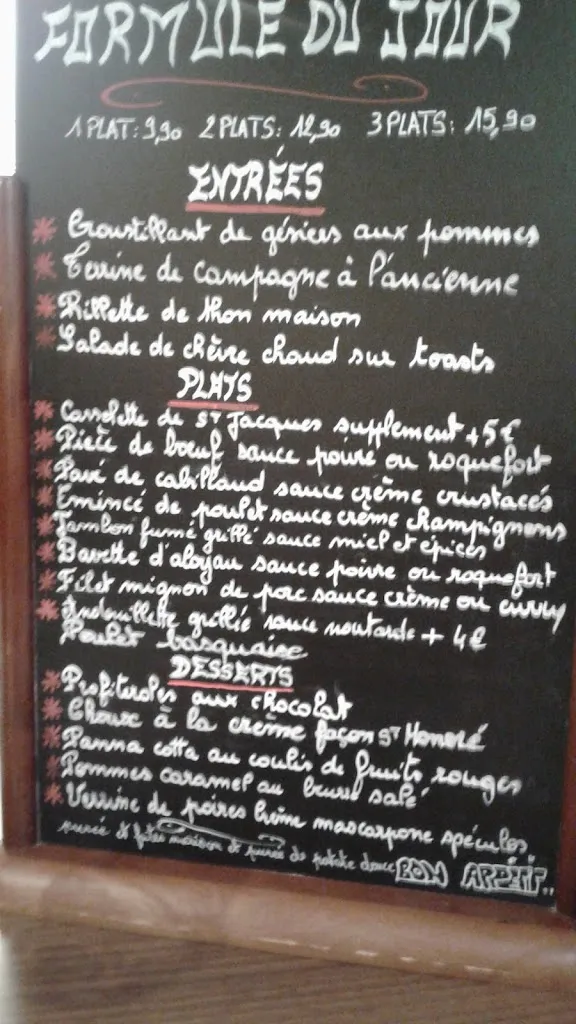 FORMULE DU JOUR
1 PLAT: 9,90 2 PLATS: 12,90 3 PLATS: 15,90
ENTRÉES
* Croustillant de gésiers aux pommes
* Terrine de campagne à l'ancienne
* Rillette de thon maison
* Salade de chèvre chaud sur toasts
PLATS
* Cassolette de ST Jacques supplement +5€
* Pièce de bœuf sauce poivre ou roquefort
* Pavé de cabillaud sauce crème crustacés
* Emincé de poulet sauce crème champignons
* Jambon fumé grillé sauce miel et épices
* Bavette d'aloyau sauce poivre ou roquefort
* Filet mignon de porc sauce crème ou curry
* Andouillette grillée sauce moutarde + 4€
Poulet basquaise
DESSERTS
* Profiteroles aux chocolat
* Choux à la crème façon ST Honoré
* Panna cotta au coulis de fruits rouges
* Pommes caramel au beurre salé
* Verrine de poires crème mascarpone spéculos
purée et frites maison et purée de patate douce BON APPÉTIT..